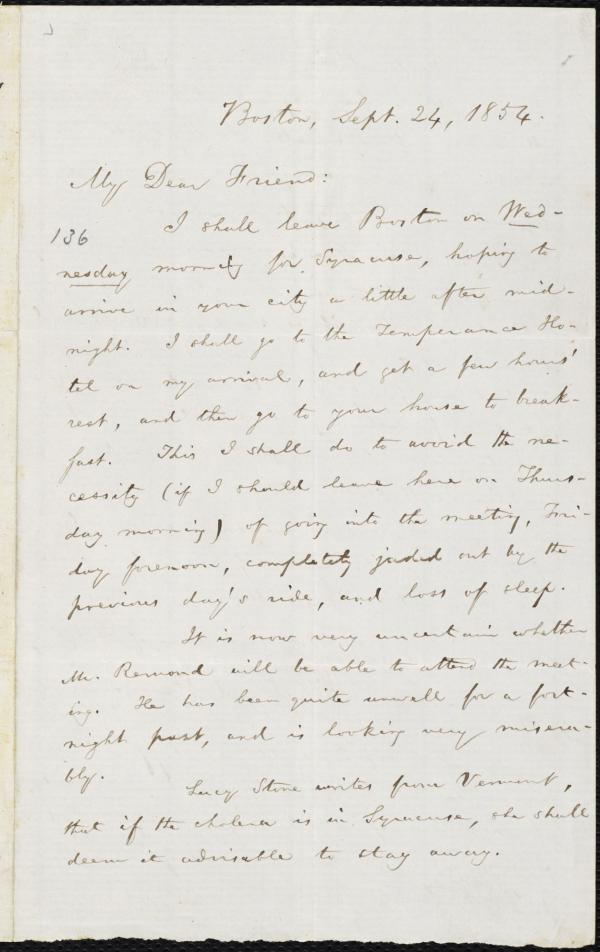 Boston, Sept. 24, 1854.
My Dear Friend:
I shall leave Boston on Wed-
136
nesday morning for Syracuse, hoping to
arrive in your city a little after mid-
night. I shall go to the Temperance Ho-
tel on my arrival, and get a few hours'
rest, and then go to your house to break-
fast. This I shall do to avoid the ne-
cessity (if I should leave here on Thurs-
day morning) of going into the meeting, Fri-
day forenoon, completely jaded out by the
previous day's ride, and loss of sleep.
It is now very uncertain whether
Mr. Remond will be able to attend the meet-
ing. He has been quite unwell for a fort-
night past, and is looking very misera-
bly.
Lucy Stone writes from Vermont,
that if the cholera is in Syracuse, she shall
deem it advisable to stay away.